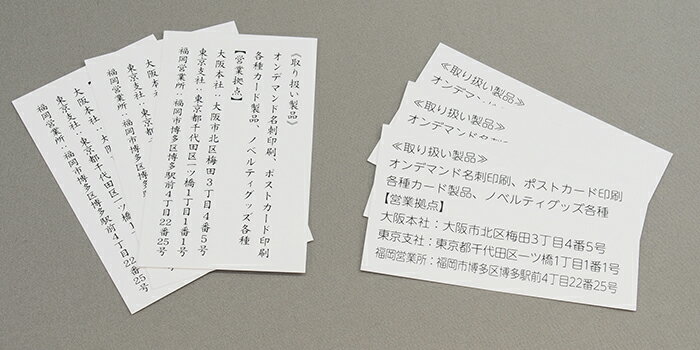 ≪取り扱い製品≫
オンデマンド名刺印刷、ポストカード印刷
各種カード製品、ノベルティグッズ各種
【営業拠点】
大阪本社：大阪市北区梅田3丁目4番5号
東京支社：東京都千代田区一ツ橋1丁目1番1号
福岡営業所：福岡市博多区博多駅前4丁目22番25号
東京支社：東京都千代田区一ツ橋1丁目1番1号
福岡営業所：福岡市博多区博多駅前4丁目22番25号
大阪本社：
東京支社：東京
福岡営業所：福岡市博多区博多駅前4丁目22番25号
≪取り扱い製品≫
オンデマン
≪取り扱い製品≫
オンデマンド
≪取り扱い製品≫
オンデマンド名刺印刷、ポストカード印刷
各種カード製品、ノベルティグッズ各種
【営業拠点】
大阪本社：大阪市北区梅田3丁目4番5号
東京支社：東京都千代田区一ツ橋1丁目1番1号
福岡営業所：福岡市博多区博多駅前4丁目22番25号